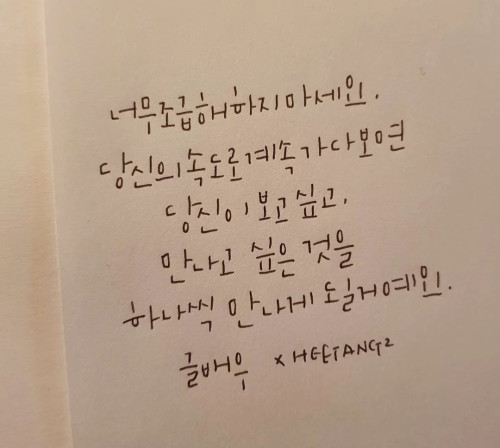 너무조급해하지마세요.
당신의속도로계속가다보면
당신이 보고 싶고,
만나고 싶은 것을
하나씩 만나게 될거예요.
글배우 × HEETANG2